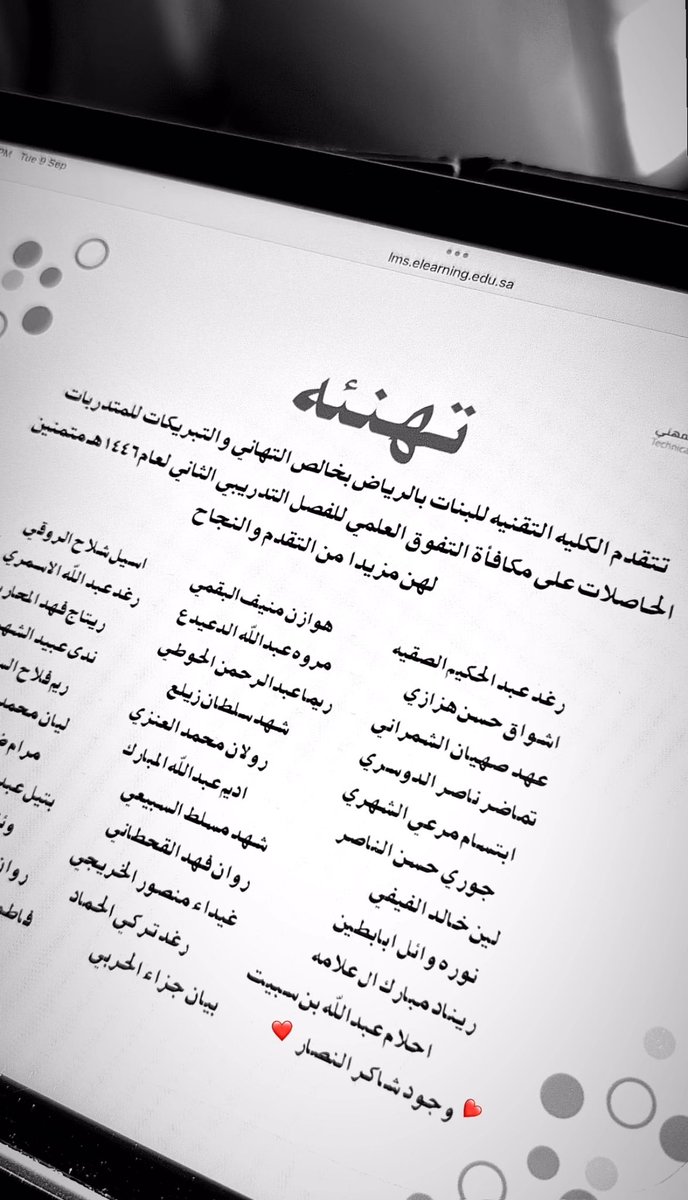 PM Tue 9 Sep
lms.elearning.edu.sa
Technica
تهنئه
تتقدم الكليه التقنيه للبنات بالرياض بخالص التهاني والتبريكات للمتدربات
الحاصلات على مكافأة التفوق العلمي للفصل التدريبي الثاني لعام ١٤٤٦هـ متمنين
لهن مزيدا من التقدم والنجاح
رغد عبد الحكيم الصقيه
اشواق حسن هزازي
عهد صهيان الشمراني
تماضر ناصر الدوسري
ابتسام مرعي الشهري
جوري حسن الناصر
لين خالد الفيفي
نوره وائل ابابطين
ريناد مبارك ال علامه
احلام عبدالله بن سبيت
وجود شاكر النصار
هوازن منيف البقمي
مروه عبدالله الدعيدع
ريما عبدالرحمن الحوطي
شهد سلطان زيلع
رولان محمد العنزي
اديم عبدالله المبارك
شهد مسلط السبيعي
روان فهد القحطاني
غيداء منصور الخريجي
رغد تركي الحماد
بيان جزاء الحربي
اسيل شلاح الروقي
رغد عبدالله الاسمري
ريتاج فهد
ندى عبيد
ريم فلاح
ليان محمد
مرام
بتيل
روان